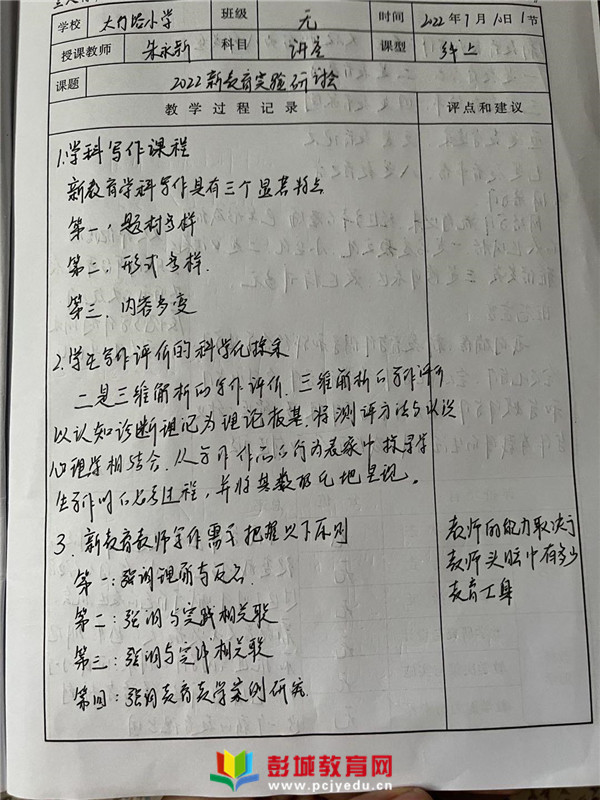 学校 大刘塔小学 班级 无 时间 2022年7月10日1节
授课教师 朱永新 科目 讲座 课型 线上
课题 2022新教育实验研讨会
教学过程记录 评点和建议
1.学科写作课程
新教育学科写作具有三个显著特点
第一,题材多样
第二,形式多样.
第三,内容多变
2.学生写作评价的科学化探索
二是三维解析的写作评价.三维解析的写作评价
以认知诊断理论为理论根基.将测评方法与认知
心理学相结合.从写作作品的行为表象中探寻学
生写作时的思考过程,并将其数据化地呈现。
3.新教育教师写作需要把握以下原则
第一:强调理解与反思.
第二:强调与实践相关联
第三:强调与实践相关联
第四:强调教育教学案例研究
教师的能力取决于
教师头脑中有多少
教育工具
彭城教育网
www.pcjyedu.cn